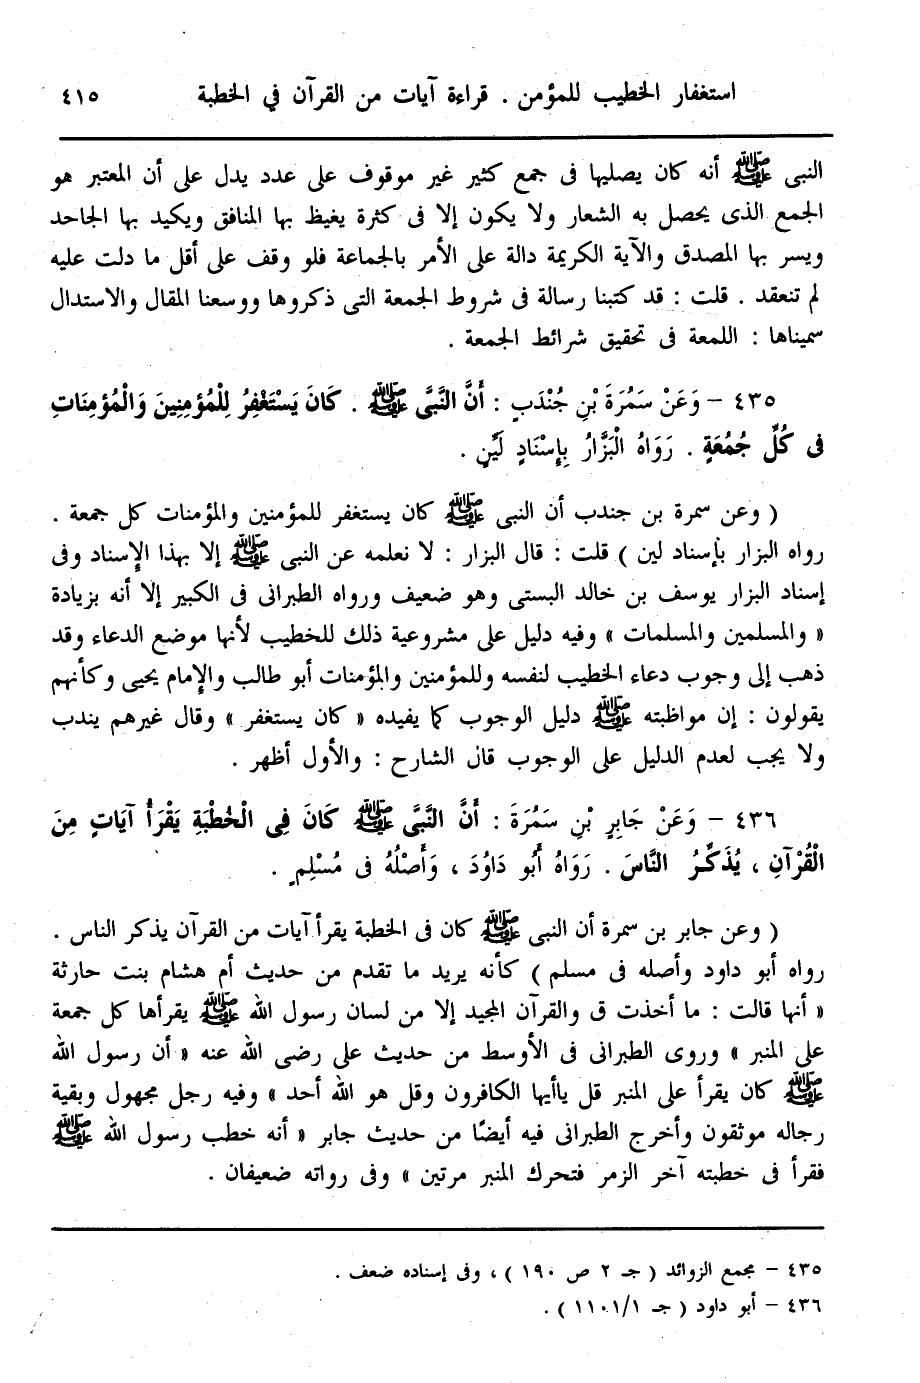 استغفار الخطيب للمؤمن . قراءة آيات من القرآن في الخطبة ٤١٥
النبى ﷺ أنه كان يصليها فى جمع كثير غير موقوف على عدد يدل على أن المعتبر هو
الجمع الذى يحصل به الشعار ولا يكون إلا فى كثرة يغيظ بها المنافق ويكيد بها الجاحد
ويسر بها المصدق والآية الكريمة دالة على الأمر بالجماعة فلو وقف على أقل ما دلت عليه
لم تنعقد . قلت : قد كتبنا رسالة فى شروط الجمعة التى ذكروها ووسعنا المقال والاستدال
سميناها : اللمعة فى تحقيق شرائط الجمعة .
٤٣٥ – وَعَنْ سَمُرَةَ بْنِ جُنْدَبٍ : أَنَّ النَّبىَّ ﷺ . كَانَ يَسْتَغْفِرُ لِلْمُؤمِنِينَ وَالْمُؤمِنَاتِ
فى كُلِّ جُمُعَةٍ . رَوَاهُ الْبَزَّارُ بِإسْنَادٍ لَيِّنٍ .
( وعن سمرة بن جندب أن النبى ﷺ كان يستغفر للمؤمنين والمؤمنات كل جمعة .
رواه البزار بأسناد لين ) قلت : قال البزار : لا نعلمه عن النبى ﷺ إلا بهذا الإسناد وفى
إسناد البزار يوسف بن خالد البستى وهو ضعيف ورواه الطبرانى فى الكبير إلا أنه بزيادة
« والمسلمين والمسلمات » وفيه دليل على مشروعية ذلك للخطيب لأنها موضع الدعاء وقد
ذهب إلى وجوب دعاء الخطيب لنفسه وللمؤمنين والمؤمنات أبو طالب والإمام يحيى وكأنهم
يقولون : إن مواظبته ﷺ دليل الوجوب كما يفيده « كان يستغفر » وقال غيرهم يندب
ولا يجب لعدم الدليل على الوجوب قال الشارح : والأول أظهر .
٤٣٦ – وَعَنْ جَابِرِ بْنِ سَمُرَةَ : أَنَّ النَّبىَّ ﷺ كَانَ فِى الْخُطْبَةِ يَقْرَأُ آيَاتٍ مِنَ
الْقُرْآنِ ، يُذَكِّرُ النَّاسَ . رَوَاهُ أَبُو دَاوُدَ ، وَأَصْلُهُ فى مُسْلِمٍ .
( وعن جابر بن سمرة أن النبى ﷺ كان فى الخطبة يقرأ آيات من القرآن يذكر الناس .
رواه أبو داود وأصله فى مسلم ) كأنه يريد ما تقدم من حديث أم هشام بنت حارثة
« أنها قالت : ما أخذت ق والقرآن المجيد إلا من لسان رسول الله ﷺ يقرأها كل جمعة
على المنبر » وروى الطبرانى فى الأوسط من حديث على رضى الله عنه « أن رسول الله
ﷺ كان يقرأ على المنبر قل ياأيها الكافرون وقل هو الله أحد » وفيه رجل مجهول وبقية
رجاله موثقون وأخرج الطبرانى فيه أيضًا من حديث جابر « أنه خطب رسول الله ﷺ
فقرأ فى خطبته آخر الزمر فتحرك المنبر مرتين » وفى رواته ضعيفان .
٤٣٥ – مجمع الزوائد ( جـ ٢ ص ١٩٠ ) ، وفى إسناده ضعف .
٤٣٦ – أبو داود ( جـ ١١٠١/١ ) .